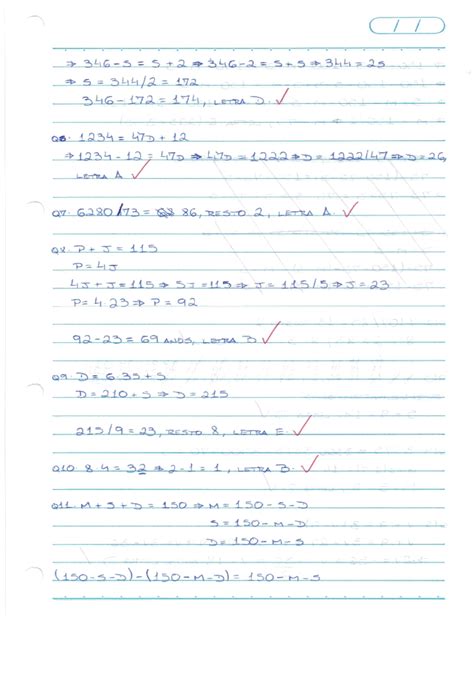 / /
⇒ 346-S = S+2 ⇒ 346-2 = S+S ⇒ 344 = 2S
⇒ S = 344/2 = 172
346-172 = 174, LETRA D. ✓
Q6. 1234 = 47D + 12
⇒ 1234-12 = 47D ⇒ 47D = 1222 ⇒ D = 1222/47 ⇒ D = 26,
LETRA A ✓
Q7. 6280/73 = 86, RESTO 2, LETRA A. ✓
Q8. P + J = 115
P = 4J
4J + J = 115 ⇒ 5J = 115 ⇒ J = 115/5 ⇒ J = 23
P = 4.23 ⇒ P = 92
92-23 = 69 ANOS, LETRA D ✓
Q9. D = 6.35 + 5
D = 210 + 5 ⇒ D = 215
215/9 = 23, RESTO 8, LETRA E. ✓
Q10. 8.4 = 32 ⇒ 2-1 = 1, LETRA B. ✓
Q11. M + S + D = 150 ⇒ M = 150-S-D
S = 150-M-D
D = 150-M-S
(150-S-D)-(150-M-D) = 150-M-S